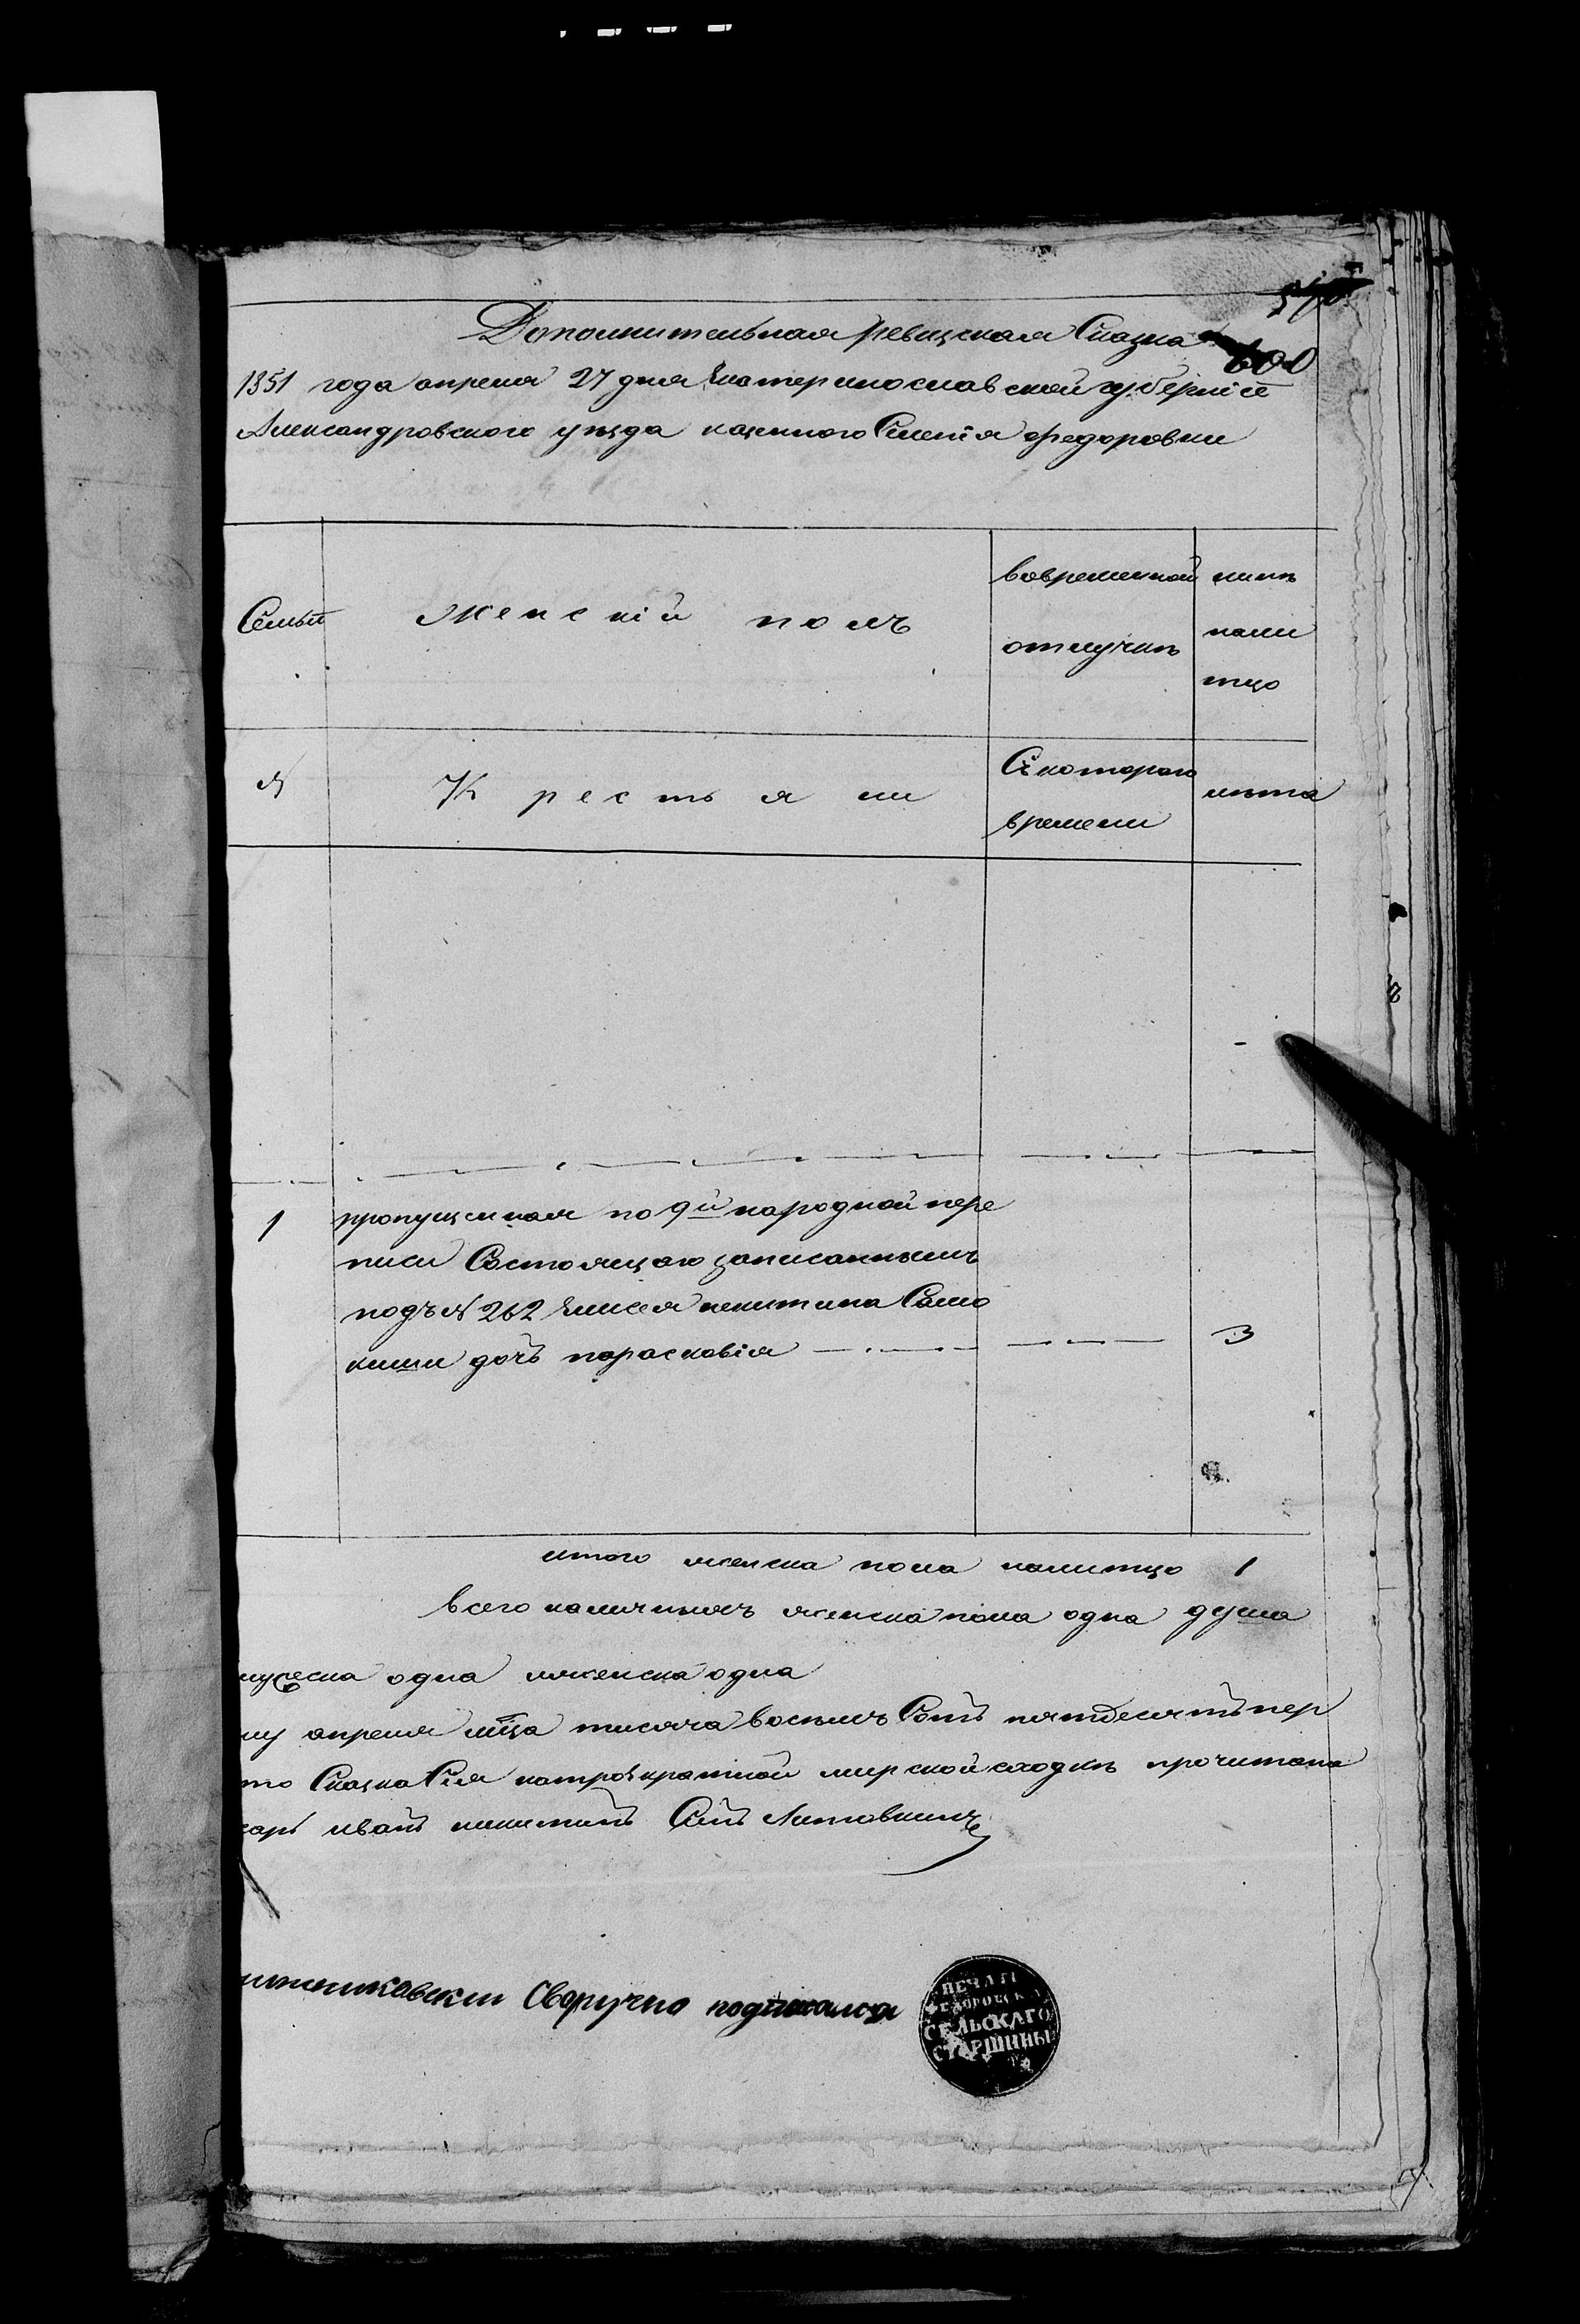 600
Дополнительная ревизская Сказка
1851 года апреля 27 дня Екатеринославской губерніи
Александровского уезда казенного Селенія федоровки
Семьи
Женскій полъ
вовременной
отлучкѣ
нынѣ
нали
тцо
№
Крестьяни
Скоторого
времени
лѣта
1
пропущенная по 9й народной пере
писи Состоящаго записаннымъ
подъ № 262 Елисея никитина Само
киши дочь парасковія
3
итого женска пола налитцо 1
всего наличныхъ женска пола одна душа
мужеска одна иженска одна
апреля мца тисяча восемъ Сотъ пятдесятъ пер
то Сказка Сия натрохкратной мирской сходкѣ прочитана
сарь иванъ никитинъ Сынъ Литовкинъ
Своручно подписался
ПЕЧАТ
ФЕДОРОВСКА
СЕЛЬСКАГО
СТАРШИНЫ